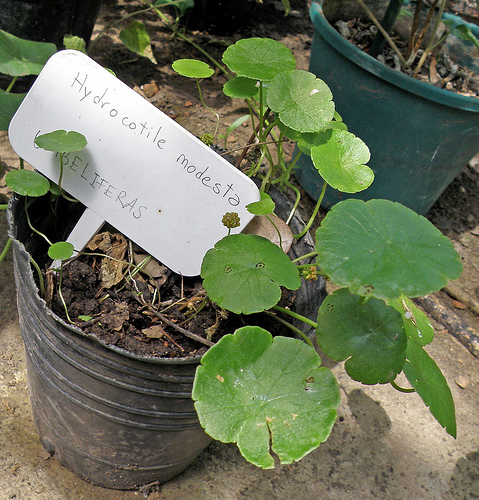 Hydrocotile modesta
BELIFERAS